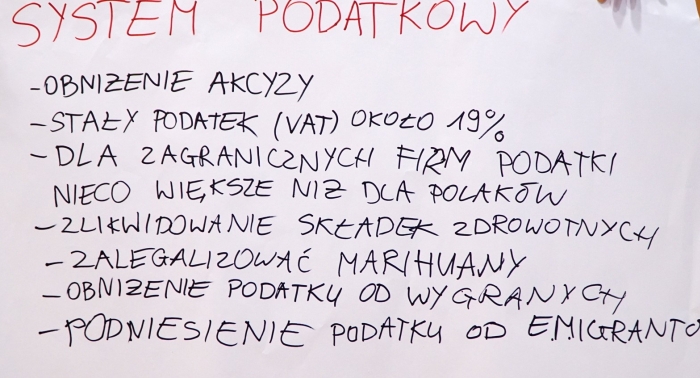 SYSTEM PODATKOWY
-OBNIŻENIE AKCYZY
-STAŁY PODATEK (VAT) OKOŁO 19%
-DLA ZAGRANICZNYCH FIRM PODATKI
NIECO WIĘKSZE NIŻ DLA POLAKÓW
-ZLIKWIDOWANIE SKŁADEK ZDROWOTNYCH
-ZALEGALIZOWAĆ MARIHUANY
-OBNIŻENIE PODATKU OD WYGRANYCH
-PODNIESIENIE PODATKU OD EMIGRANTO